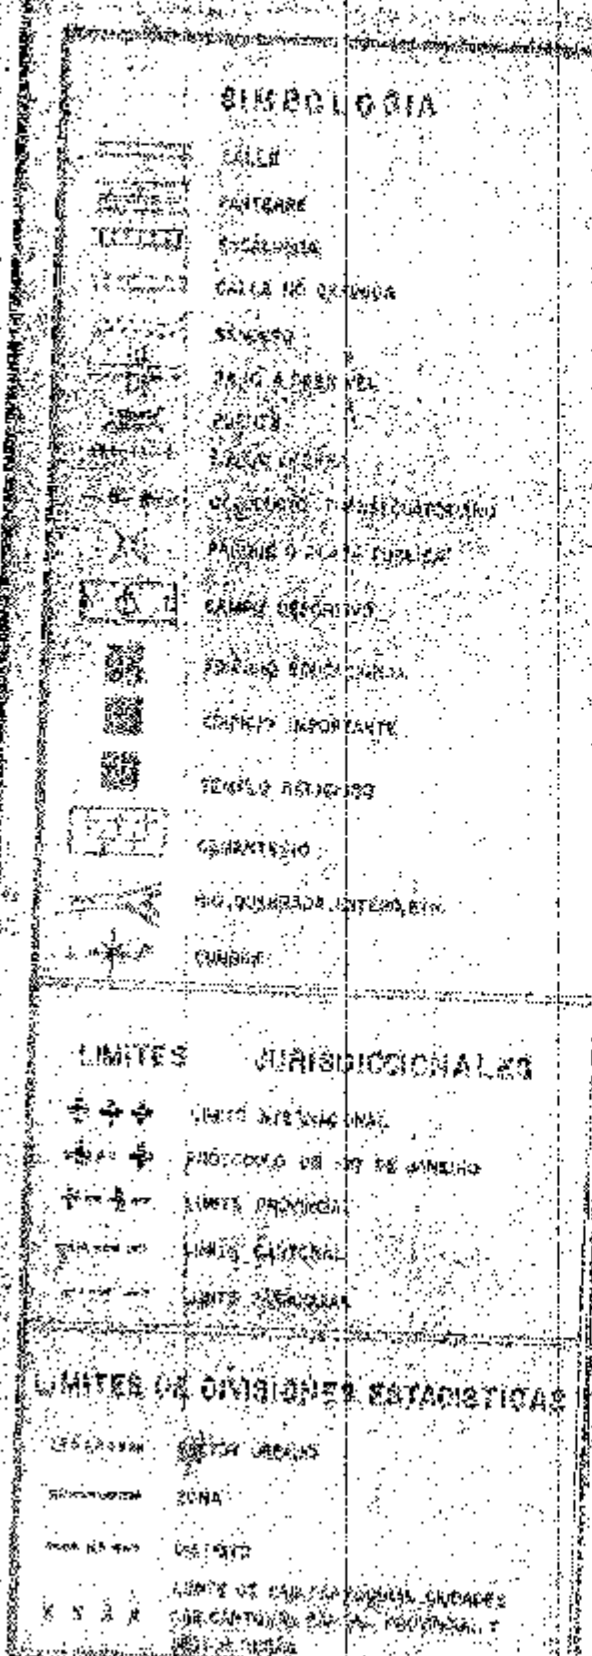 SIMBOLOGIA
CALLE
PASAJE
ESCALINATA
CALLE NO DEFINIDA
SENDERO
PASO A DESNIVEL
PUENTE
LINEA FERREA
OLEODUCTO TRANSECUATORIANO
PARQUE O PLAZA PUBLICA
CAMPO DEPORTIVO
EDIFICIO EDUCACIONAL
EDIFICIO IMPORTANTE
TEMPLO RELIGIOSO
CEMENTERIO
RIO, QUEBRADA, ESTERO, ETC.
CUMBRE
LIMITES JURISDICCIONALES
LIMITE INTERNACIONAL
PROTOCOLO DE RIO DE JANEIRO
LIMITE PROVINCIAL
LIMITE CANTONAL
LIMITE PARROQUIAL
LIMITES DE DIVISIONES ESTADISTICAS
SECTOR URBANO
ZONA
LIMITE DE CAB. PARROQUIAL, CIUDADES
CAB. CANTONAL, PROVINCIAL, Y